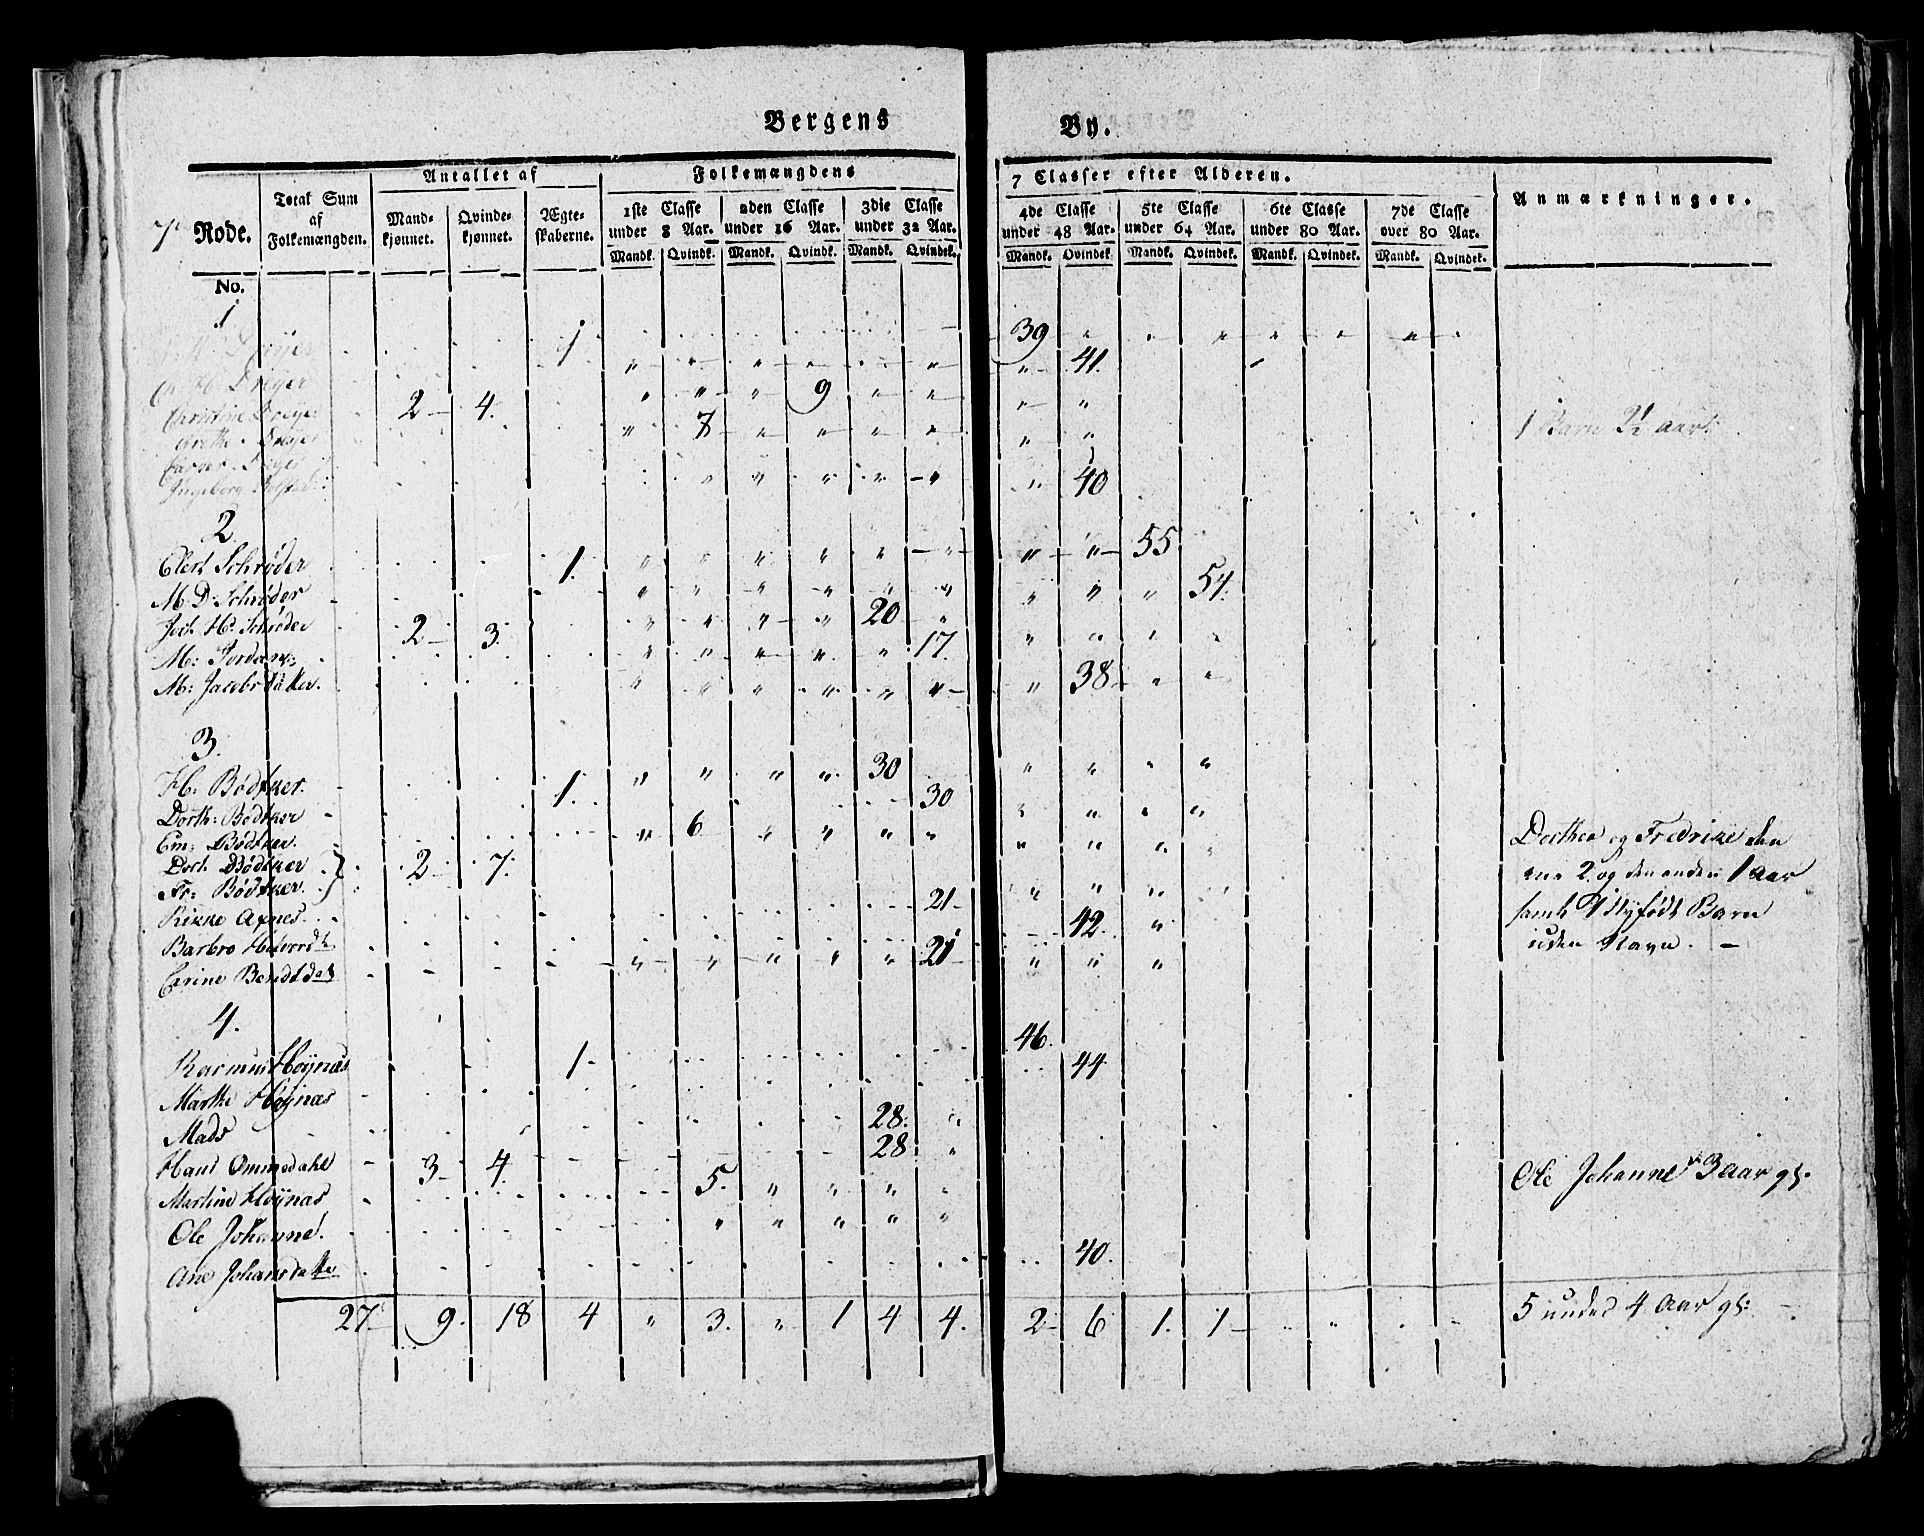 Bergens By.
7de Rode.
Total Sum af Folkemængden.
Antallet af
Mandkjønnet. Qvindekjønnet. Ægteskaberne.
Folkemængdens 7 Classer efter Alderen.
1ste Classe under 8 Aar. 2den Classe under 16 Aar. 3die Classe under 32 Aar. 4de Classe under 48 Aar. 5te Classe under 64 Aar. 6te Classe under 80 Aar. 7de Classe over 80 Aar.
Mandk. Qvindk. Mandk. Qvindk. Mandk. Qvindek. Mandk. Qvindek. Mandk. Qvindek. Mandk. Qvindek. Mandk. Qvindek.
Anmærkninger.
No.
1
Dreyer 1 39
H. Dreyer 41
Christine Dreyer 2 4. 9
Grethe Dreyer 7 1 Barn
Dreyer
Ingeborg 40
2.
Clert Schrøder 1. 55
M. D. Schrøder 54.
Joch. H. Schrøder 2 3. 20
M: Jordan 17.
M: Jacobsdatter. 38
3.
H. Bødtker. 1. 30
Dorth: Bødtker 30
Em: Bødtker. 6 Dorthea og Fredrike den
Doth. Bødtker 2 7. ene 2 og den anden 1 Aar
Fr: Bødtker.
Rikke Axnes 21 samt 1 Nyfødt Barn
Barbro 42. uden Navn. –
Carine Bendtdat 21
4.
Rasmus Høynæs 1 46.
Marthe Høynæs 44
Mads 28.
Hans Ommedahl 3 4. 28
Martine Høynæs 5. Ole Johannes 3 Aar gl.
Ole Johannes.
Ane Johansdatter 40.
27. 9. 18 4 " 3. " 1 4 4. 2 6 1. 1 5 under 4 Aar gl: –